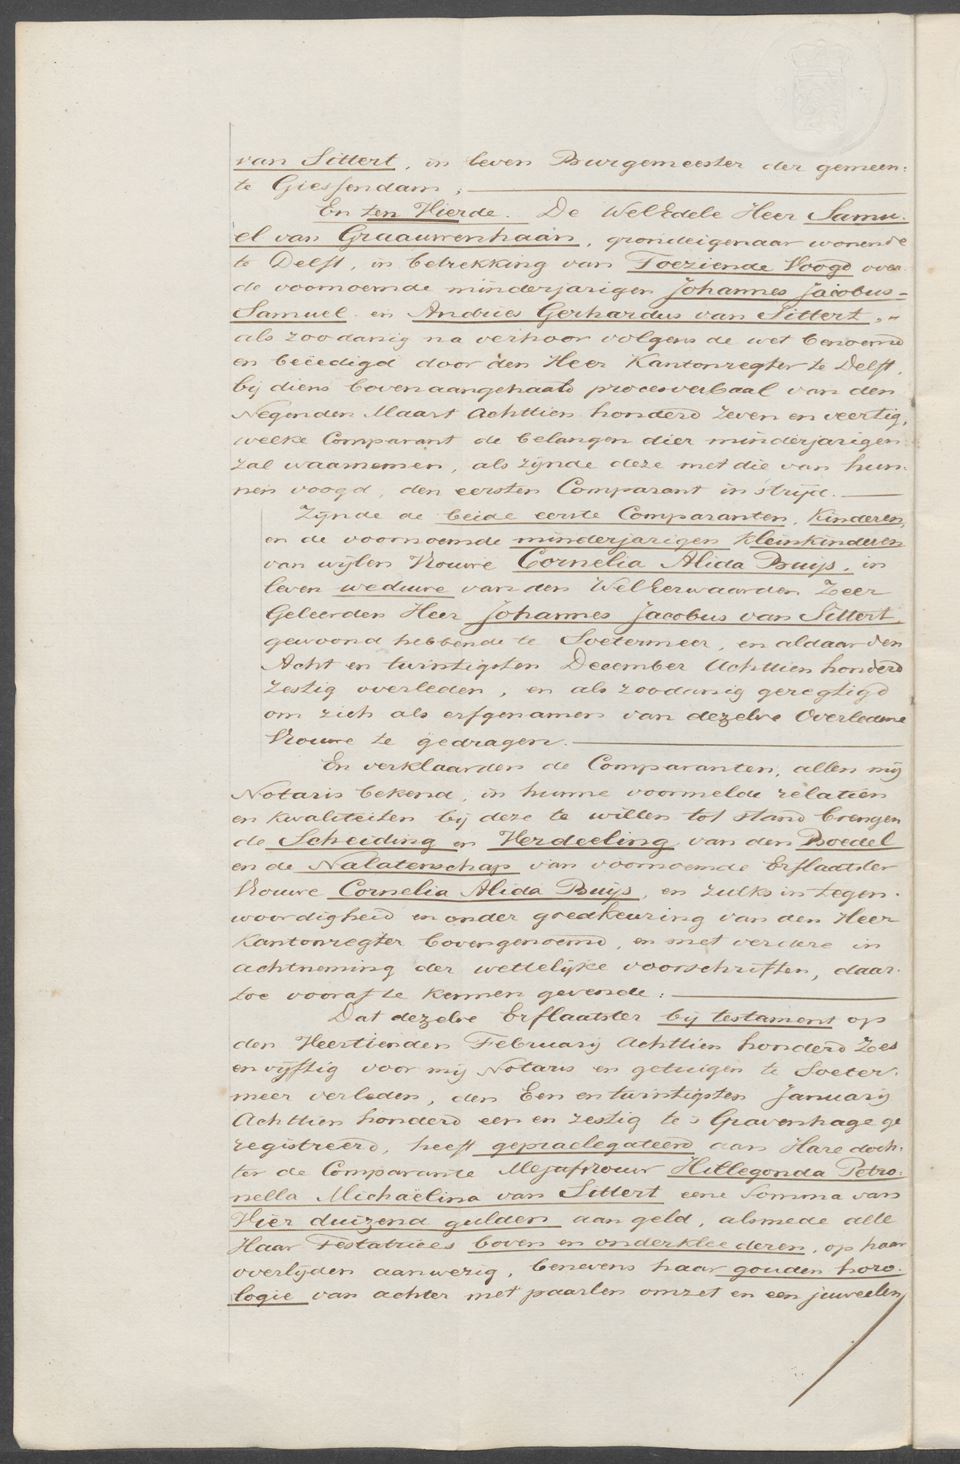 van Sittert, in leven Burgemeester der gemeen:
te Giessendam; 
En ten Vierde. De WelEdele Heer Samu:
el van Graauwenhaan, grondeigenaar wonende
te Delft, in betrekking van Toeziende Voogd over
de voornoemde minderjarigen Johannes Jacobus-
Samuel en Andries Gerhardus van Sittert,-
als zoodanig na verhoor volgens de wet benoemd
en beëedigd door den Heer Kantonregter te Delft,
bij diens bovenaangehaald procesverbaal van den
Negenden Maart Achttien honderd zeven en veertig,
welke Comparant de belangen dier minderjarigen
zal waarnemen, als zijnde deze met die van hun:
nen voogd, den eersten Comparant in strijd.
Zijnde de beide eerste Comparanten, Kinderen,
en de voornoemde minderjarigen Kleinkinderen
van wijlen Vrouwe Cornelia Alida Buijs, in
leven weduwe van den WelEerwaarden Zeer
Geleerden Heer Johannes Jacobus van Sittert,
gewoond hebbende te Soetermeer, en aldaar den
Acht en twintigsten December Achttien honderd
zestig overleden, en als zoodanig geregtigd
om zich als erfgenamen van dezelve Overledene
Vrouwe te gedragen.
En verklaarden de Comparanten, allen mij
Notaris bekend, in hunne voormelde relatien
en kwaliteiten bij deze te willen tot stand brengen
de Scheiding en Verdeeling van den Boedel
en de Nalatenschap van voornoemde Erflaatster
Vrouwe Cornelia Alida Buijs, en zulks in tegen:
woordigheid en onder goedkeuring van den Heer
Kantonregter bovengenoemd, en met verdere in
achtneming der wettelijke voorschriften, daar:
toe vooraf te kennen gevende:
Dat dezelve Erflaatster bij testament op
den Veertienden Februarij Achttien honderd Zes
en vijftig voor mij Notaris en getuigen te Soeter:
meer verleden, den Een en twintigsten Januarij
Achttien honderd een en zestig te 's Gravenhage ge
registreerd, heeft gepraelegateerd aan Hare doch:
ter de Comparante Mejufvrouw Hillegonda Petro:
nella Michaëlina van Sittert eene Somma van
Vier duizend gulden aan geld, alsmede alle
Haar Testatrices boven en onderkleederen, op haar
overlijden aanwezig, benevens haar gouden horo:
logie van achter met paarlen omzet en een juweelen